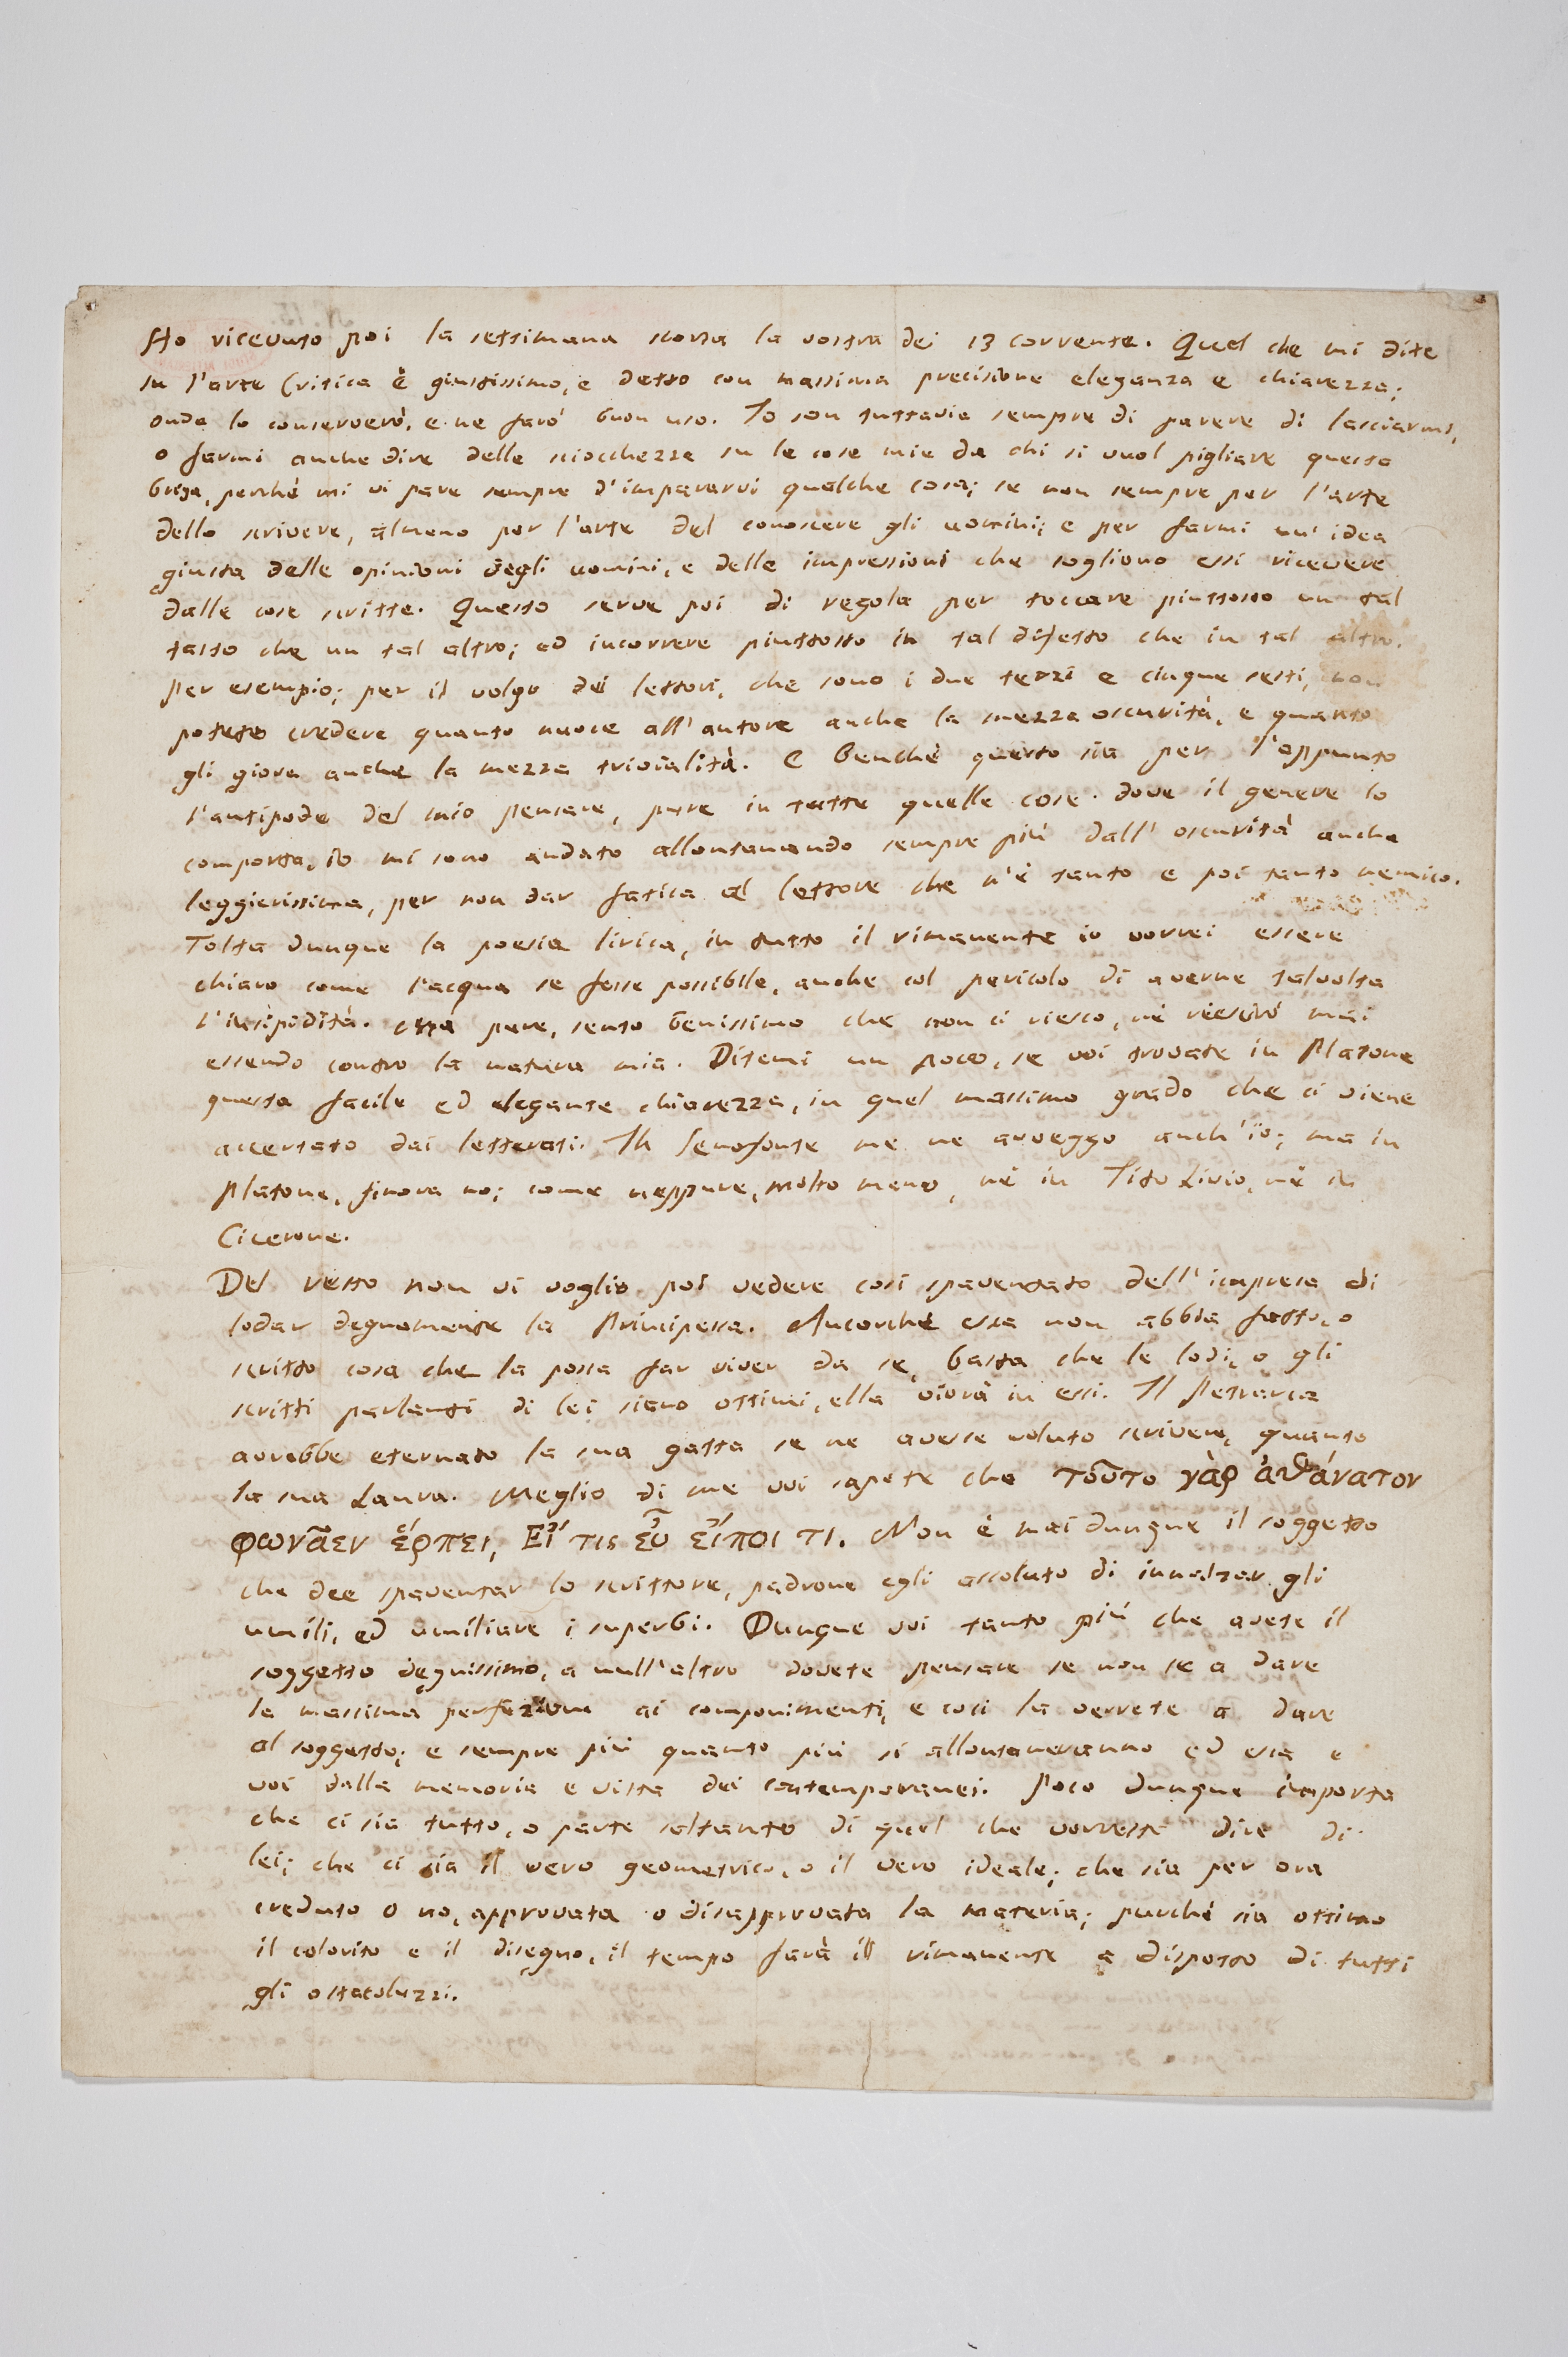 Ho ricevuto poi la settimana scorsa la vostra dei 13 corrente. Quel che mi dite
su l'arte Critica è giustissimo, e detto con massima precisione eleganza e chiarezza;
onde lo conserverò, e ne farò buon uso. Io son tuttavia sempre di parere di lasciarmi,
o farmi anche dire delle sciocchezze su le cose mie da chi si vuol pigliare questa
briga, perché mi vi pare sempre d'impararvi qualche cosa; se non sempre per l'arte
dello scrivere, almeno per l'arte del conoscere gli uomini; e per farmi un'idea
giusta delle opinioni degli uomini, e delle impressioni che sogliono essi ricevere
dalle cose scritte. Questo serve poi di regola per toccare piuttosto un tal
tasto che un tal altro; ed incorrere piuttosto in tal difetto che in tal altro.
Per esempio; per il volgo dei lettori, che sono i due terzi e cinque sesti, non
potete credere quanto nuoce all'autore anche la mezza oscurità, e quanto
gli giova anche la mezza trivialità. E benché questo sia per l'appunto
l'antipode del mio pensare, pure in tutte quelle cose dove il genere lo
comporta, io mi sono andato allontanando sempre più dall'oscurità anche
leggierissima, per non dar fatica al lettore che n'è tanto e poi tanto nemico.
Tolta dunque la poesia lirica, in tutto il rimanente io vorrei essere
chiaro come l'acqua se fosse possibile, anche col pericolo di averne talvolta
l'insipidità. Ma pure, sento benissimo che non ci riesco, nè riescirò mai
essendo contro la natura mia. Ditemi un poco, se voi trovate in Platone
questa facile ed elegante chiarezza, in quel massimo grado che ci viene
accertato dai letterati. In Senofonte me ne avveggo anch'io; ma in
Platone, finora no; come neppure, molto meno, nè in Tito Livio, nè in
Cicerone.
Del resto non vi voglio poi vedere così spaventato dell'impresa di
lodar degnamente la Principessa. Ancorché essa non abbia fatto, o
scritto cosa che la possa far viver da se, basta che le lodi, o gli
scritti parlanti di lei siano ottimi, ella vivrà in essi. Il Petrarca
avrebbe eternato la sua gatta se ne avesse voluto scrivere, quanto
la sua Laura. Meglio di me voi sapete che τοῦτο γὰρ ἀθάνατον
φωνᾶεν ἕρπει, Εἴ τις εὖ εἴποι τι. Non è mai dunque il soggetto
che dee spaventar lo scrittore, padrone egli assoluto di innalzar gli
umili, ed umiliare i superbi. Dunque voi tanto più che avete il
soggetto degnissimo, a null'altro dovete pensare se non se a dare
la massima perfezione ai componimenti, e così la verrete a dare
al soggetto; e sempre più quanto più si allontaneranno ed essa e
voi dalla memoria e vista dei contemporanei. Poco dunque importa
che ci sia tutto, o parte soltanto di quel che vorreste dire di
lei; che ci sia il vero geometrico, o il vero ideale; che sia per ora
creduto o no, approvata o disapprovata la materia; purché sia ottimo
il colorito e il disegno, il tempo farà il rimanente a dispetto di tutti
gli ostacoluzzi.